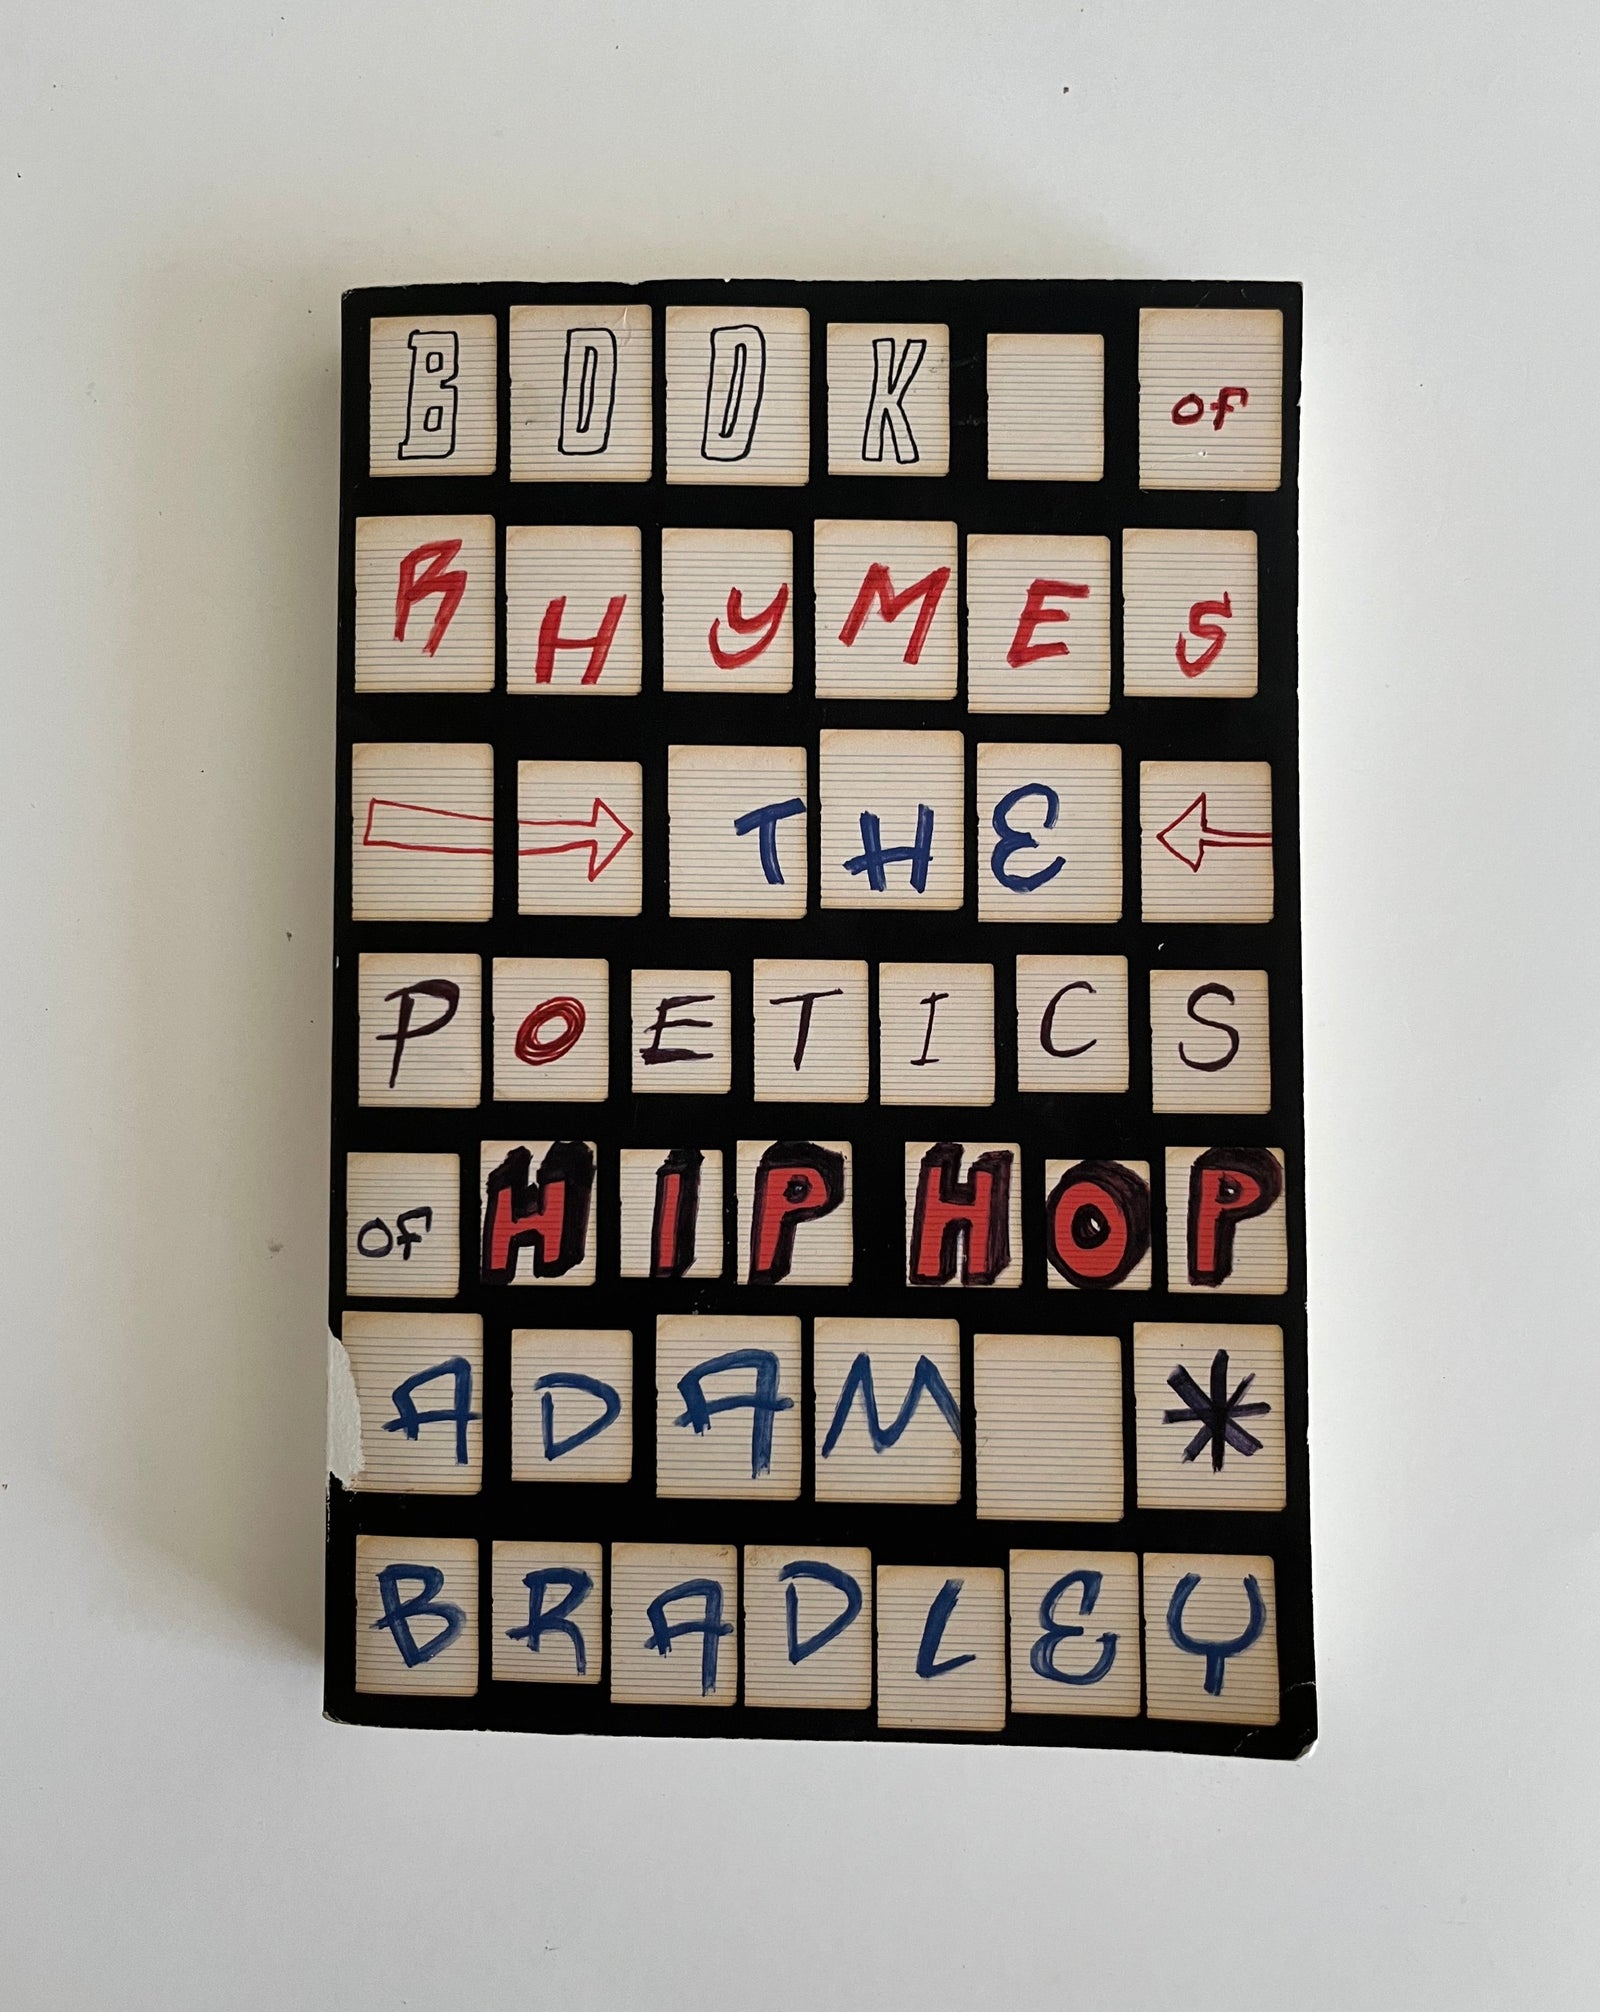 BOOK of
RHYMES
THE
POETICS
of HIP HOP
ADAM *
BRADLEY